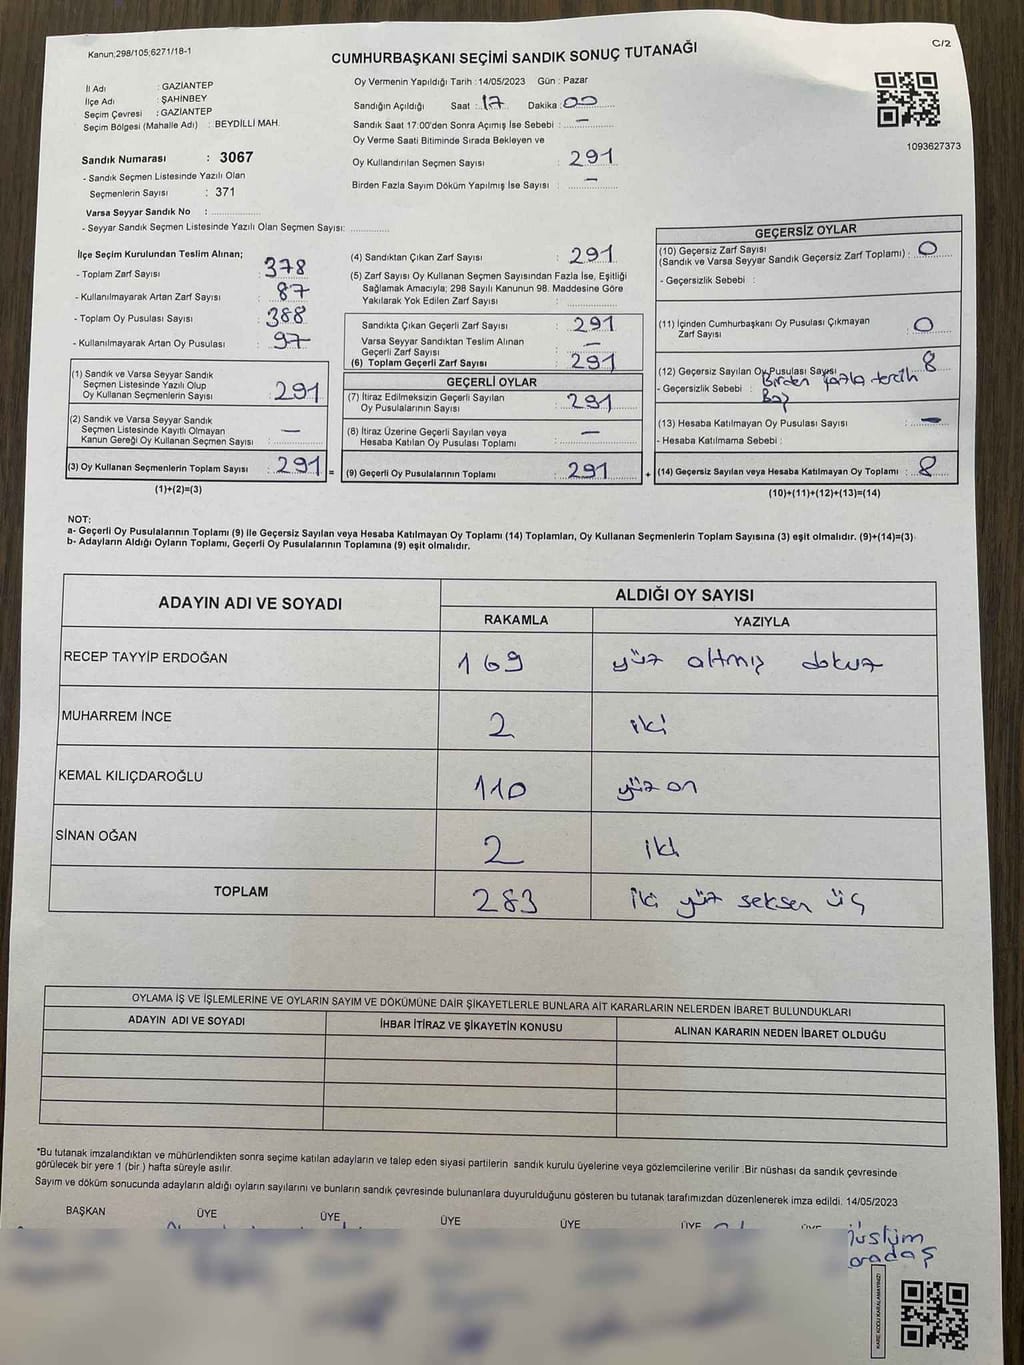 Kanun;298/105;6271/18-1
C/2
CUMHURBAŞKANI SEÇİMİ SANDIK SONUÇ TUTANAĞI
İl Adı : GAZİANTEP
İlçe Adı : ŞAHİNBEY
Seçim Çevresi : GAZİANTEP
Seçim Bölgesi (Mahalle Adı) : BEYDİLLİ MAH.
Sandık Numarası : 3067
- Sandık Seçmen Listesinde Yazılı Olan
Seçmenlerin Sayısı : 371
Varsa Seyyar Sandık No :
- Seyyar Sandık Seçmen Listesinde Yazılı Olan Seçmen Sayısı:
Oy Vermenin Yapıldığı Tarih : 14/05/2023 Gün : Pazar
Sandığın Açıldığı Saat : 17 Dakika : 00
Sandık Saat 17:00'den Sonra Açımış İse Sebebi : —
Oy Verme Saati Bitiminde Sırada Bekleyen ve
Oy Kullandırılan Seçmen Sayısı : 291
Birden Fazla Sayım Döküm Yapılmış İse Sayısı : —
1093627373
İlçe Seçim Kurulundan Teslim Alınan;
- Toplam Zarf Sayısı : 378
- Kullanılmayarak Artan Zarf Sayısı : 87
- Toplam Oy Pusulası Sayısı : 388
- Kullanılmayarak Artan Oy Pusulası : 97
(1) Sandık ve Varsa Seyyar Sandık
Seçmen Listesinde Yazılı Olup
Oy Kullanan Seçmenlerin Sayısı : 291
(2) Sandık ve Varsa Seyyar Sandık
Seçmen Listesinde Kayıtlı Olmayan
Kanun Gereği Oy Kullanan Seçmen Sayısı : —
(3) Oy Kullanan Seçmenlerin Toplam Sayısı : 291 =
(1)+(2)=(3)
(4) Sandıktan Çıkan Zarf Sayısı : 291
(5) Zarf Sayısı Oy Kullanan Seçmen Sayısından Fazla İse, Eşitliği
Sağlamak Amacıyla; 298 Sayılı Kanunun 98. Maddesine Göre
Yakılarak Yok Edilen Zarf Sayısı :
Sandıkta Çıkan Geçerli Zarf Sayısı : 291
Varsa Seyyar Sandıktan Teslim Alınan
Geçerli Zarf Sayısı : —
(6) Toplam Geçerli Zarf Sayısı : 291
GEÇERLİ OYLAR
(7) İtiraz Edilmeksizin Geçerli Sayılan
Oy Pusulalarının Sayısı : 291
(8) İtiraz Üzerine Geçerli Sayılan veya
Hesaba Katılan Oy Pusulası Toplamı : —
(9) Geçerli Oy Pusulalarının Toplamı : 291 +
GEÇERSİZ OYLAR
(10) Geçersiz Zarf Sayısı
(Sandık ve Varsa Seyyar Sandık Geçersiz Zarf Toplamı) : 0
- Geçersizlik Sebebi :
(11) İçinden Cumhurbaşkanı Oy Pusulası Çıkmayan
Zarf Sayısı : 0
(12) Geçersiz Sayılan Oy Pusulası Sayısı : 8
- Geçersizlik Sebebi : Birden fazla tercih
(13) Hesaba Katılmayan Oy Pusulası Sayısı : —
- Hesaba Katılmama Sebebi :
(14) Geçersiz Sayılan veya Hesaba Katılmayan Oy Toplamı : 8
(10)+(11)+(12)+(13)=(14)
NOT:
a- Geçerli Oy Pusulalarının Toplamı (9) ile Geçersiz Sayılan veya Hesaba Katılmayan Oy Toplamı (14) Toplamları, Oy Kullanan Seçmenlerin Toplam Sayısına (3) eşit olmalıdır. (9)+(14)=(3)
b- Adayların Aldığı Oyların Toplamı, Geçerli Oy Pusulalarının Toplamına (9) eşit olmalıdır.
ADAYIN ADI VE SOYADI
ALDIĞI OY SAYISI
RAKAMLA YAZIYLA
RECEP TAYYİP ERDOĞAN 169 yüz altmış dokuz
MUHARREM İNCE 2 iki
KEMAL KILIÇDAROĞLU 110 yüz on
SİNAN OĞAN 2 iki
TOPLAM 283 iki yüz seksen üç
OYLAMA İŞ VE İŞLEMLERİNE VE OYLARIN SAYIM VE DÖKÜMÜNE DAİR ŞİKAYETLERLE BUNLARA AİT KARARLARIN NELERDEN İBARET BULUNDUKLARI
ADAYIN ADI VE SOYADI İHBAR İTİRAZ VE ŞİKAYETİN KONUSU ALINAN KARARIN NEDEN İBARET OLDUĞU
*Bu tutanak imzalandıktan ve mühürlendikten sonra seçime katılan adayların ve talep eden siyasi partilerin sandık kurulu üyelerine veya gözlemcilerine verilir .Bir nüshası da sandık çevresinde
görülecek bir yere 1 (bir ) hafta süreyle asılır.
Sayım ve döküm sonucunda adayların aldığı oyların sayılarını ve bunların sandık çevresinde bulunanlara duyurulduğunu gösteren bu tutanak tarafımızdan düzenlenerek imza edildi. 14/05/2023
BAŞKAN ÜYE ÜYE ÜYE ÜYE ÜYE ÜYE
KARE KODU KARALAMAYINIZ!